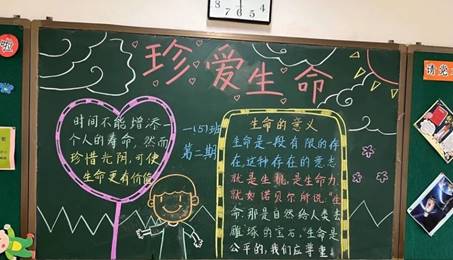 8 7 6 5 4
珍爱生命
时间不能增添一
个人的寿命，然而
珍惜光阴，可使
生命更有价值
一(5)班
第二期
生命的意义
生命是一段有限的存
在，这种存在的意志
就是生机，是生命力，
就如诺贝尔所说"生
命，那是自然给人类去
雕琢的宝石。"生命是
公平的，我们应尊重
啦